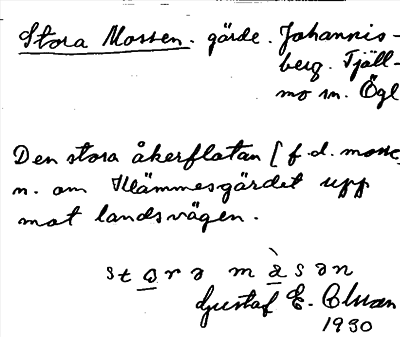 Stora Mossen. gärde. Johannis-
berg. Tjäll-
mo sn. Ögl
Den stora åkerflatan [f.d. mosse,
n. om Klämmesgärdet upp
mot landsvägen.
stɷrə mòsən
Gustaf E.
1930